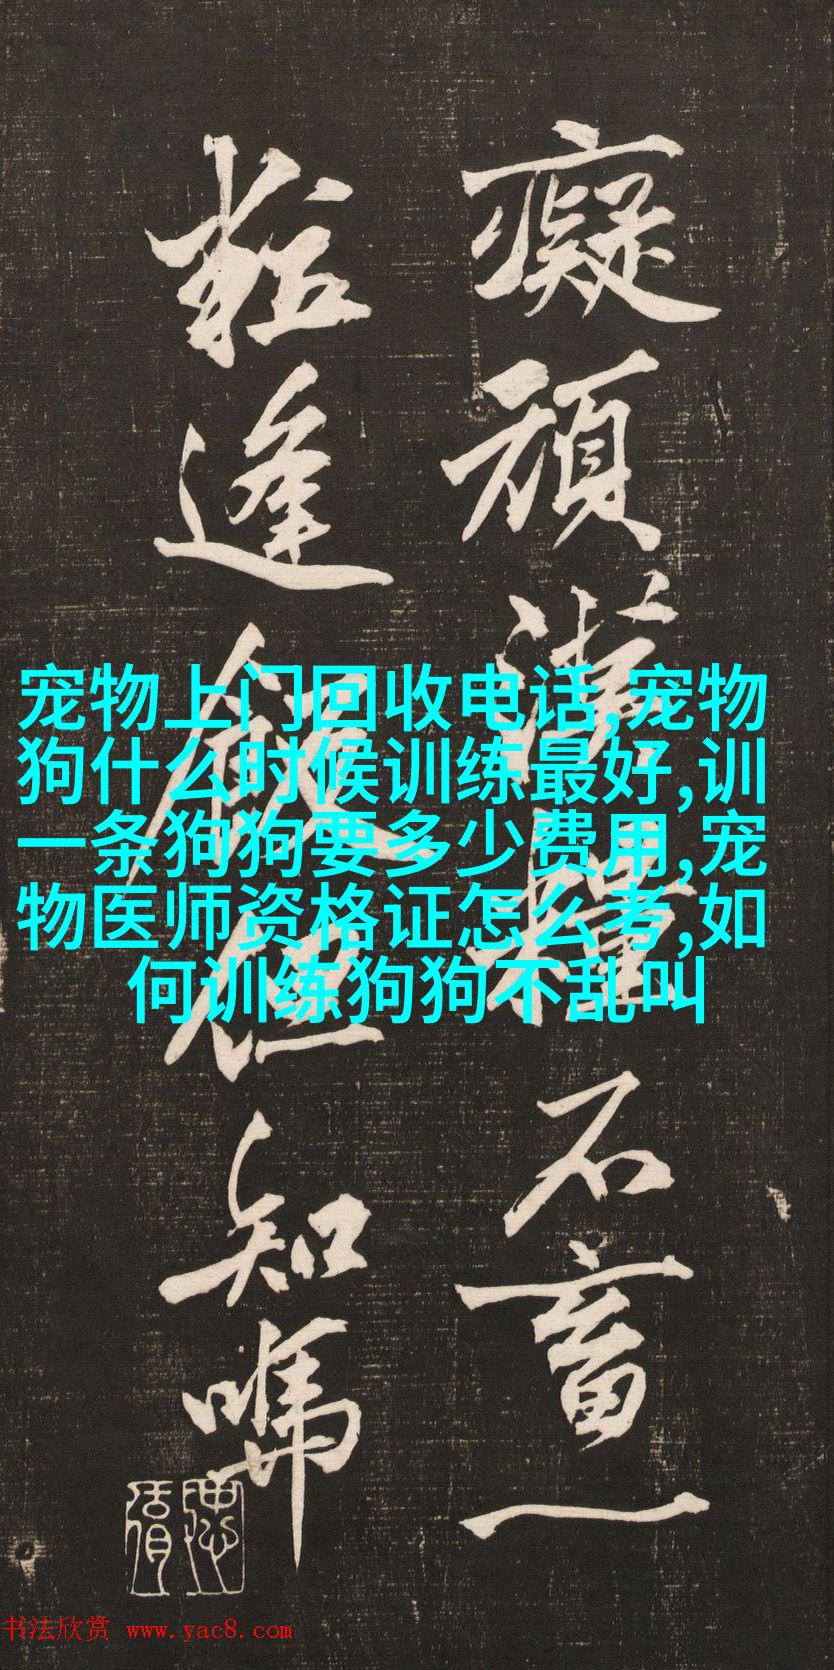 癡頑漢糧不畜一
粒逢飯但知
宠物上门回收电话,宠物
狗什么时候训练最好,训
一条狗狗要多少费用,宠
物医师资格证怎么考,如
何训练狗狗不乱叫
书法欣赏 www.yac8.com